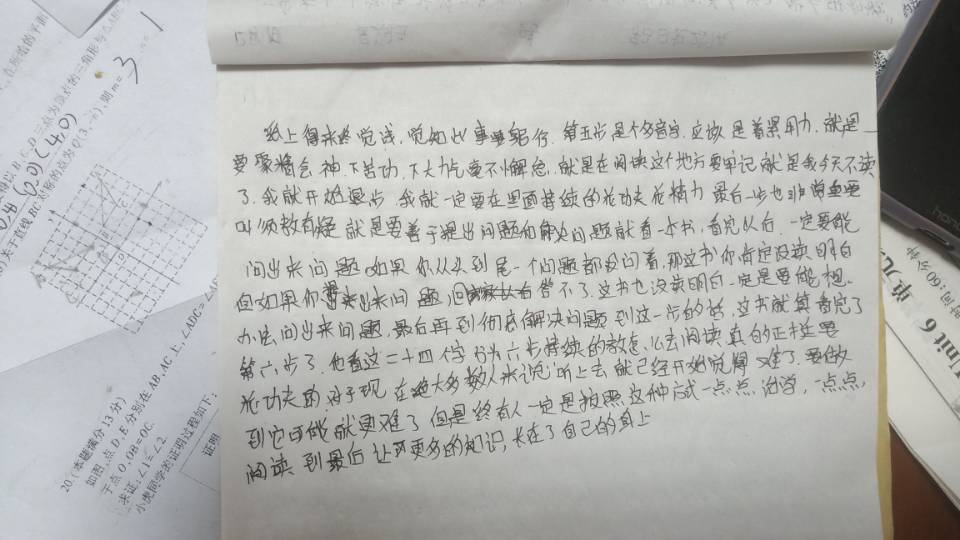 纸上得来终觉浅，觉知此事要躬行，第五步是个多音字，应该是着累用力，就是
要聚精会神，下苦功，下大力气毫不懈怠，就是在阅读这个地方要牢记就是我今天不读
了，我就开始退步，我就一定要在里面持续的花功夫花精力最后一步也非常重要
叫须教有疑就是要善于提出问题和解决问题就看一本书，看完以后，一定要能
问出来问题如果你从头到尾一个问题都没问着，那这书你肯定没读明白
但如果你问出来问题，回答不了，这书也没读明白一定是要能想
办法问出来问题，最后再到彻底解决问题到这一步的话，这书就算看完了
第六步了，他看这二十四个字分为六步持续的教怎么去阅读，真的正是要
花功夫的对于现在绝大多数人来说听上去就已经开始觉得难了，要做
到它可能就更难了但是终有人一定是按照这种方式一点点治学，一点点
阅读到最后让更多的知识，长在了自己的身上
20.(本题满分13分)
如图,点D,E分别在AB,AC上,∠ADC=
于点O,OB=OC.
求证:∠1=∠2.
小虎同学的证明过程如下:
证明
Unit 6
单元